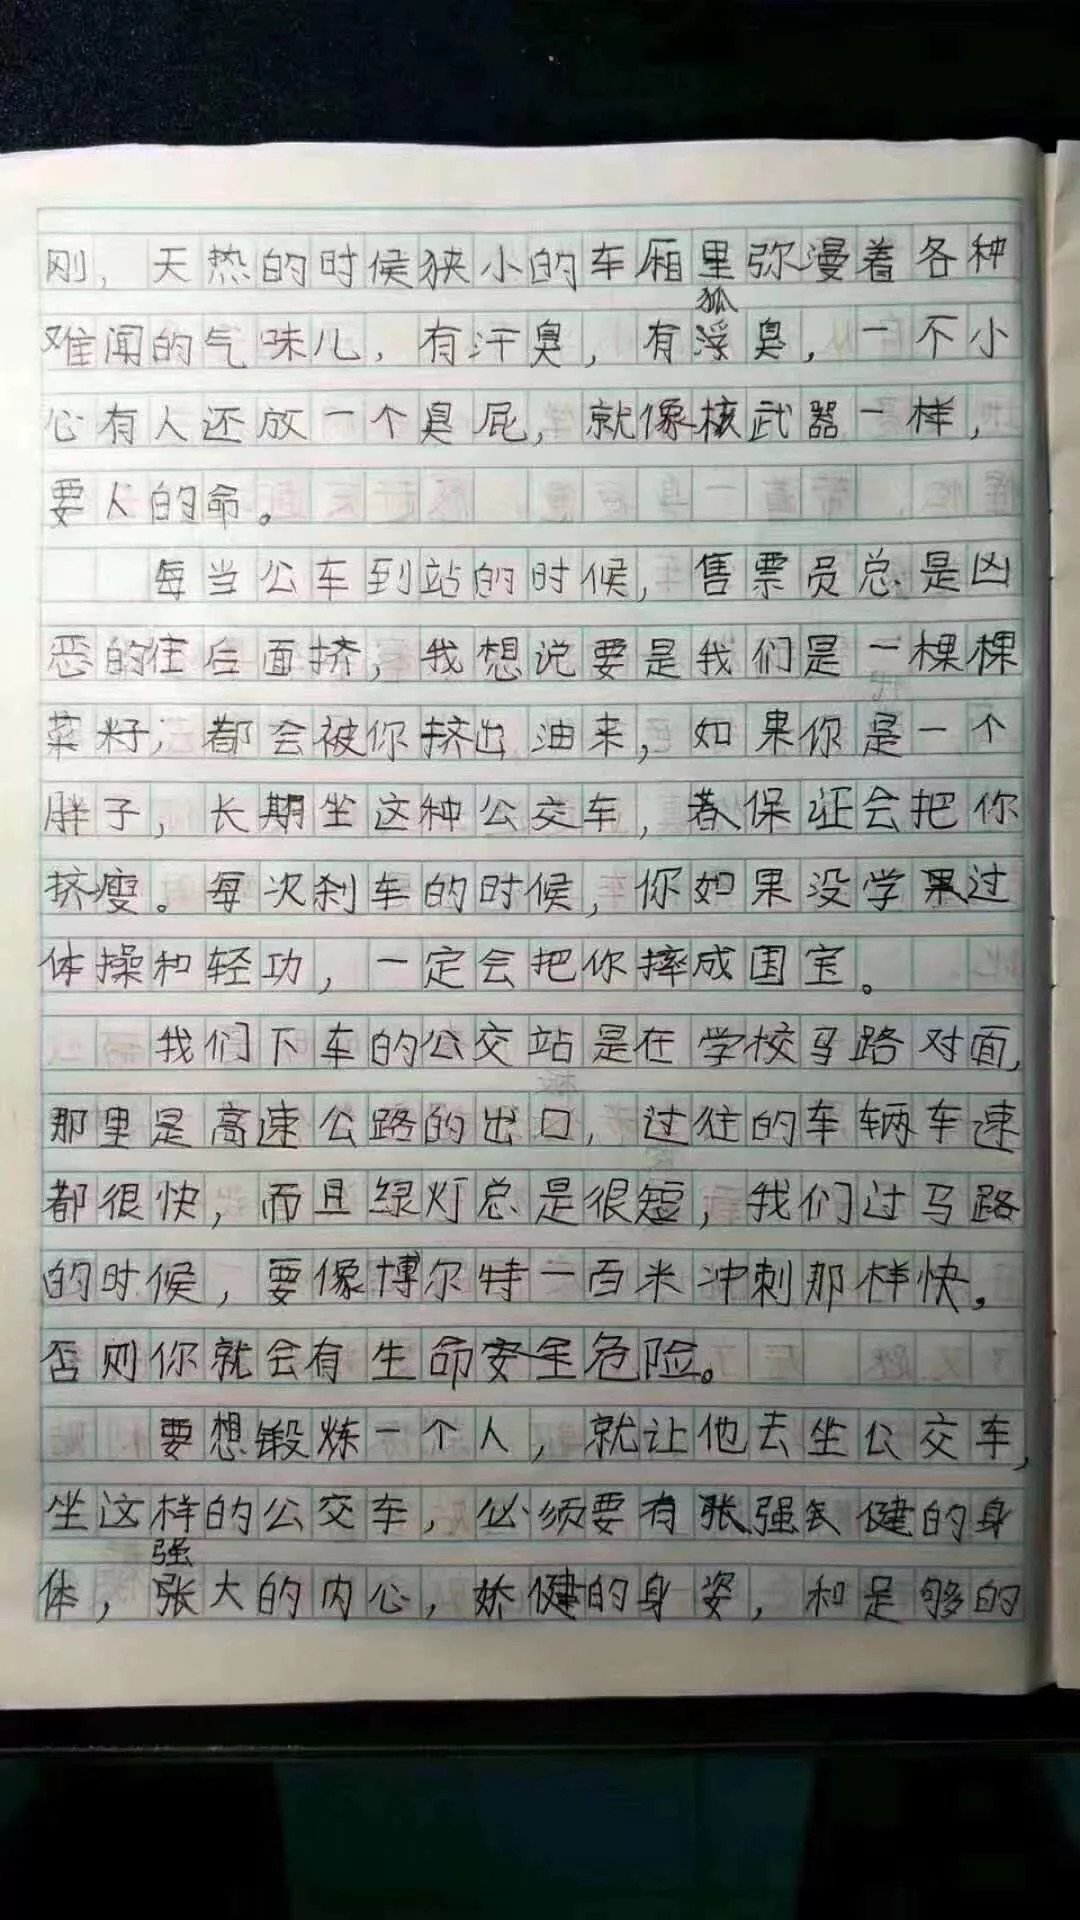 刚，天热的时候狭小的车厢里弥漫着各种
狐
难闻的气味儿，有汗臭，有浮臭，一不小
心有人还放一个臭屁，就像核武器一样，
要人的命。
每当公车到站的时候，售票员总是凶
恶的往后面挤，我想说要是我们是一棵棵
菜籽，都会被你挤出油来，如果你是一个
胖子，长期坐这种公交车，保证会把你
挤瘦。每次刹车的时候，你如果没学过
体操和轻功，一定会把你摔成国宝。
我们下车的公交站是在学校马路对面，
那里是高速公路的出口，过往的车辆车速
都很快，而且绿灯总是很短，我们过马路
的时候，要像博尔特一百米冲刺那样快。
否则你就会有生命安全危险。
要想锻炼一个人，就让他去坐公交车，
坐这样的公交车，必须要有强健的身
强
体，张大的内心，矫健的身姿，和足够的